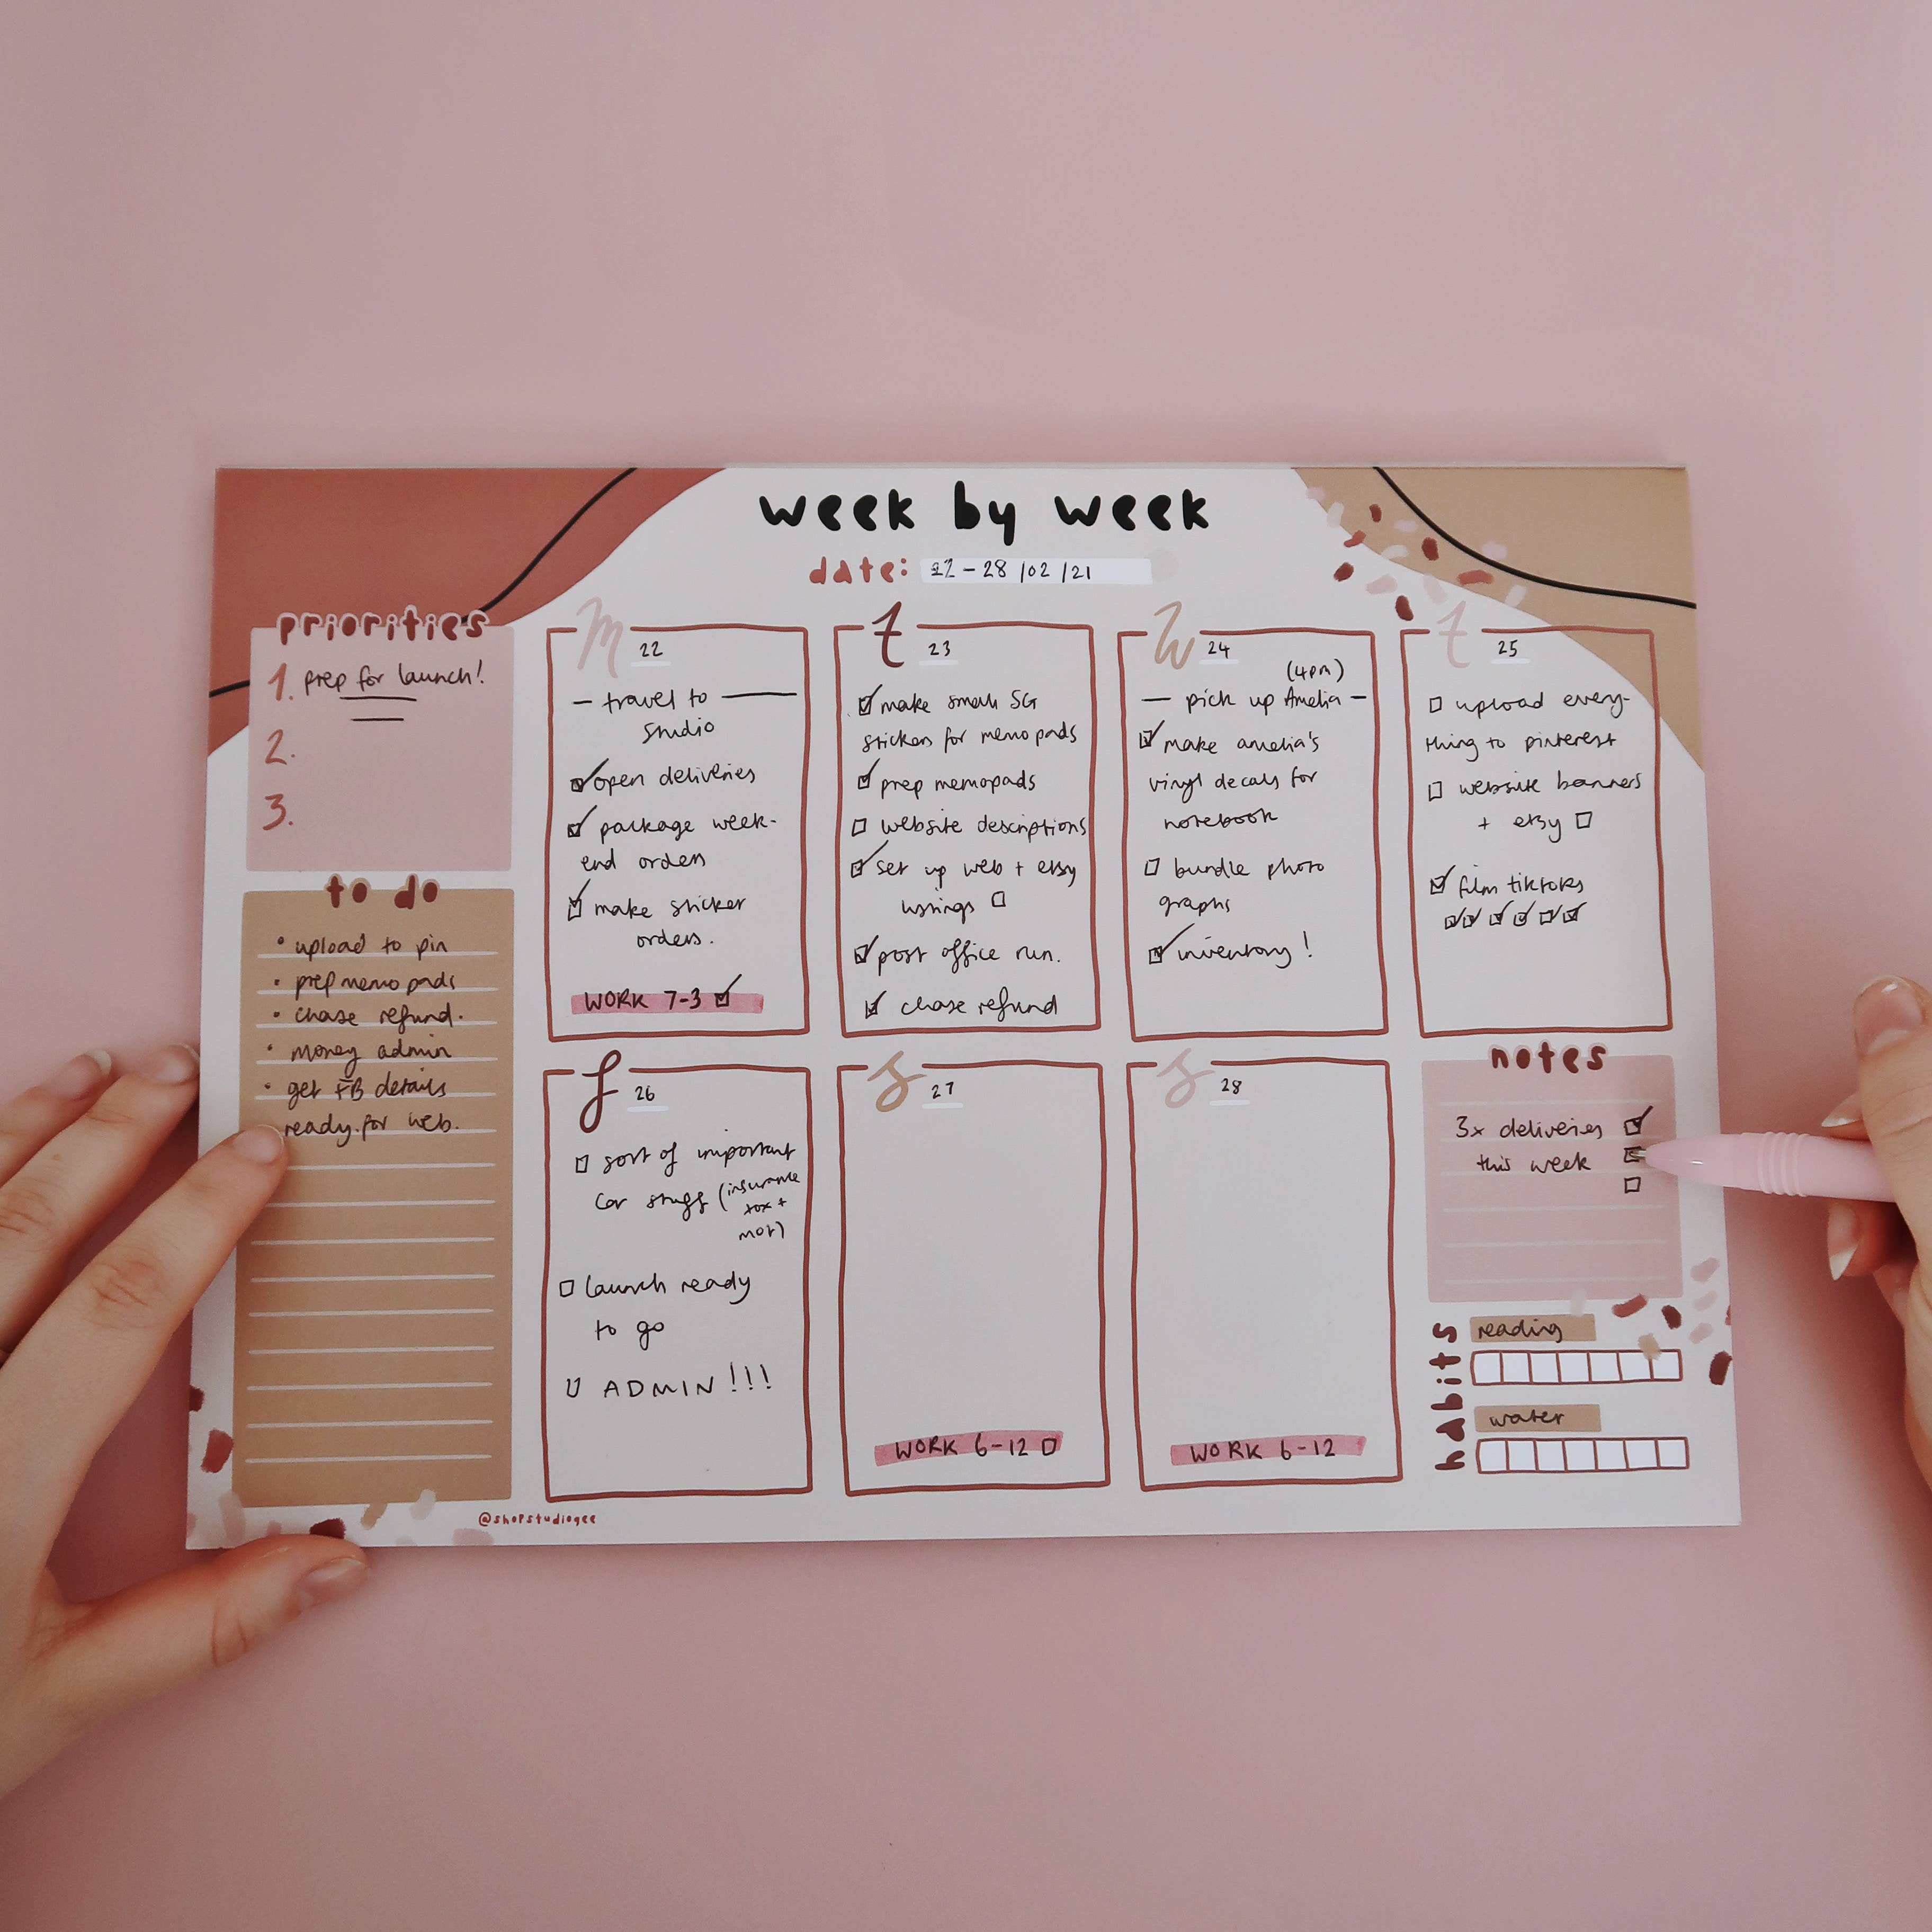 week by week
date: 22 - 28 /02 /21
priorities
1. prep for launch!
2.
3.
to do
• upload to pin
• prep memo pads
• chase refund.
• money admin
• get FB details
ready for web.
m 22
— travel to —
studio
open deliveries
package week-
end orders
make sticker
orders.
WORK 7-3
t 23
make small SG
stickers for memo pads
prep memopads
website descriptions
set up web + etsy
listings
post office run.
chase refund
w 24
(4pm)
— pick up Amelia —
make amelia's
vinyl decals for
notebook
bundle photo
graphs
inventory!
t 25
upload every-
thing to pinterest
website banners
+ etsy
film tiktoks
f 26
sort of important
car stuff (insurance
tax +
mot)
launch ready
to go
ADMIN!!!
s 27
WORK 6-12
s 28
WORK 6-12
notes
3x deliveries
this week
habits
reading
water
@shopstudiogee